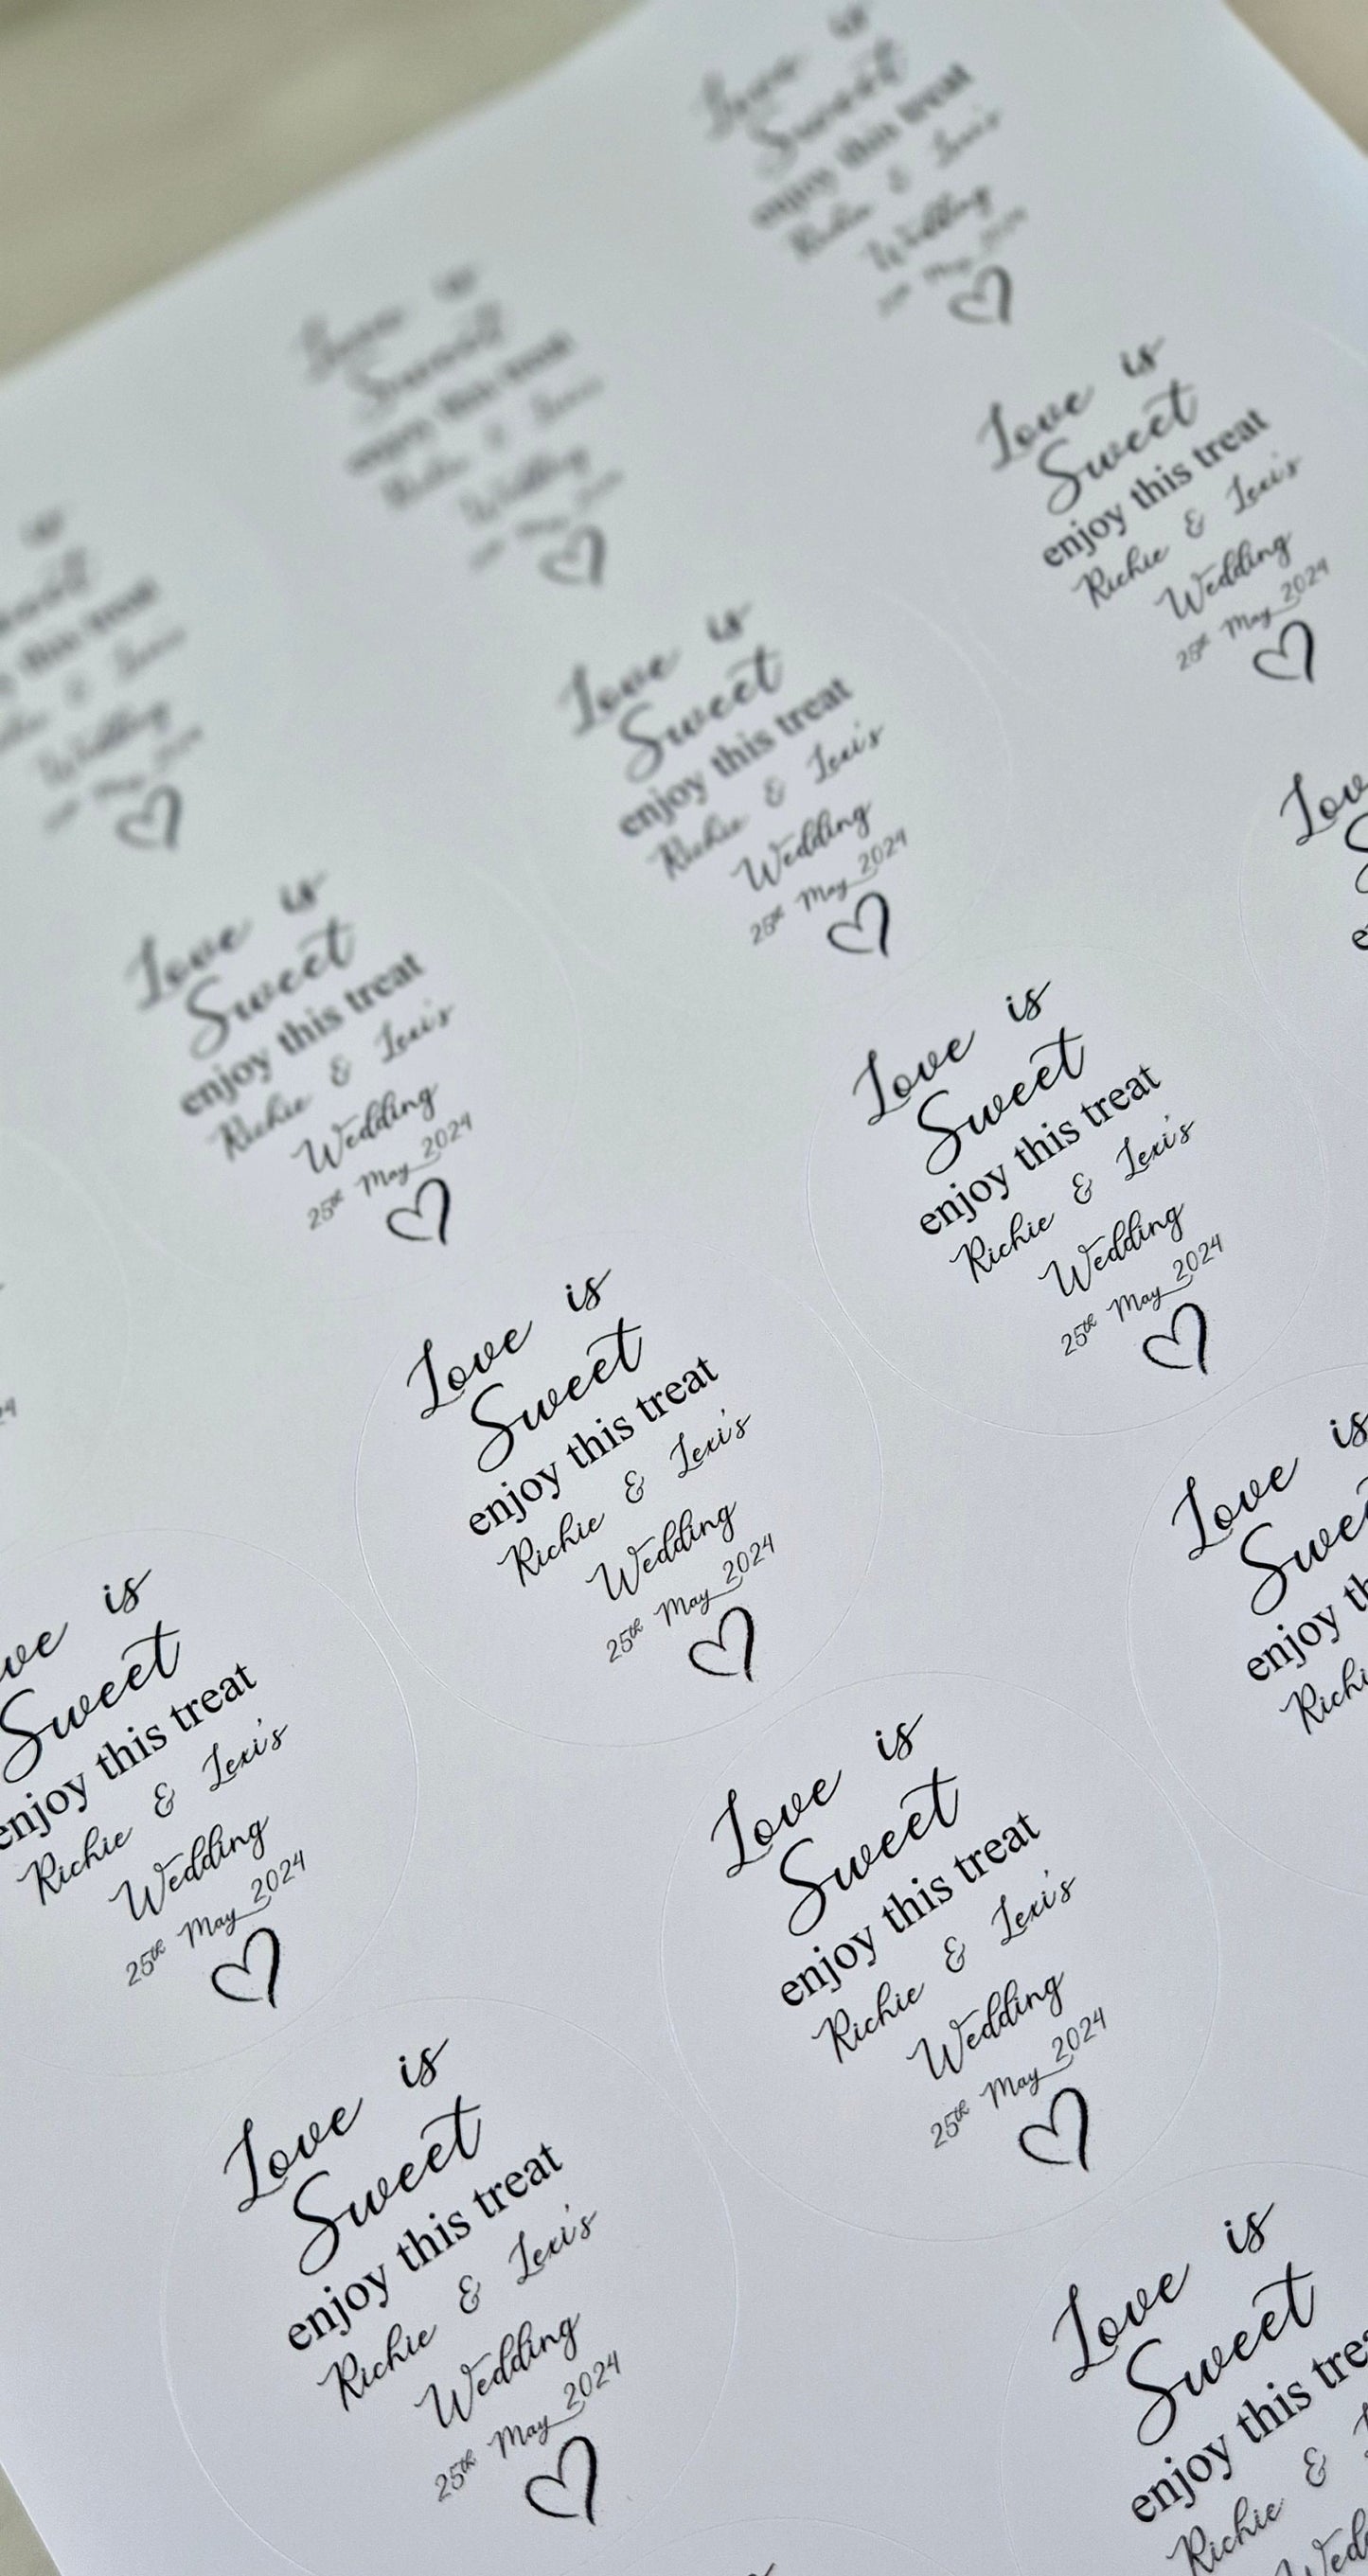 Love is
Sweet
enjoy this treat
Richie & Lexi's
Wedding
25th May 2024
Love is
Sweet
enjoy this treat
Richie & Lexi's
Wedding
25th May 2024
Love is
Sweet
enjoy this treat
Richie & Lexi's
Wedding
25th May 2024
Love is
Sweet
enjoy this treat
Richie & Lexi's
Wedding
25th May 2024
Love is
Sweet
enjoy this treat
Richie & Lexi's
Wedding
25th May 2024
Love is
Sweet
enjoy this treat
Richie & Lexi's
Wedding
25th May 2024
Love is
Sweet
enjoy this treat
Richie & Lexi's
Wedding
25th May 2024
is
Sweet
enjoy this treat
Richie & Lexi's
Wedding
25th May 2024
Love is
enjoy
Love is
Sweet
enjoy this treat
Richie & Lexi's
Wedding
25th May 2024
Love is
Sweet
enjoy this treat
Richie & Lexi's
Wedding
25th May 2024
Love is
Sweet
enjoy this
Richie &